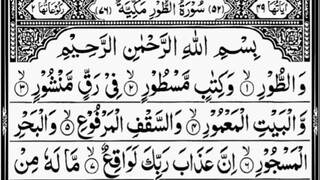 اٰيَاتُهَا ٤٩ (٥٢) سُوْرَةُ الطُّوْرِ مَكِّيَّةٌ (٧٦) رُكُوْعَاتُهَا ٢
بِسْمِ اللّٰهِ الرَّحْمٰنِ الرَّحِيْمِ
وَالطُّوْرِ ۙ﴿١﴾ وَكِتٰبٍ مَّسْطُوْرٍ ۙ﴿٢﴾ فِيْ رَقٍّ مَّنْشُوْرٍ ۙ﴿٣﴾
وَّالْبَيْتِ الْمَعْمُوْرِ ۙ﴿٤﴾ وَالسَّقْفِ الْمَرْفُوْعِ ۙ﴿٥﴾ وَالْبَحْرِ
الْمَسْجُوْرِ ۙ﴿٦﴾ اِنَّ عَذَابَ رَبِّكَ لَوَاقِعٌ ۙ﴿٧﴾ مَّا لَهٗ مِنْ